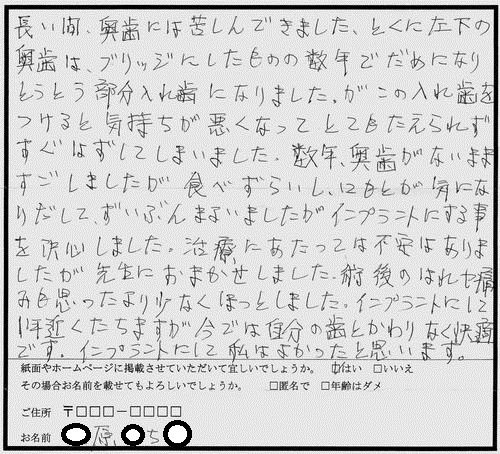 長い間、奥歯には苦しんできました、とくに左下の
奥歯は、ブリッジにしたものの数年でだめになり
とうとう部分入れ歯になりました。がこの入れ歯を
つけると気持ちが悪くなってとてもたえられず
すぐはずしてしまいました。数年、奥歯がないまま
すごしましたが食べずらいし、口もとが気にな
りだして、ずいぶんまよいましたがインプラントにする事
を決心しました。治療にあたっては不安はありま
したが先生におまかせしました。術後のはれや痛
みも思ったより少なくほっとしました。インプラントにして
1年近くたちますが今では自分の歯とかわりなく快適
です。インプラントにして私はよかったと思います。
紙面やホームページに掲載させていただいて宜しいでしょうか。 □はい □いいえ
その場合お名前を載せてもよろしいでしょうか。 □匿名で □年齢はダメ
ご住所 〒□□□－□□□□
お名前 原 ち